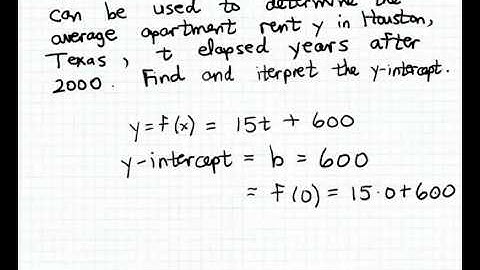 can be used to determine the
average apartment rent y in Houston,
Texas, t elapsed years after
2000. Find and iterpret the y-intercept.
y = f(x) = 15t + 600
y-intercept = b = 600
= f(0) = 15·0+600